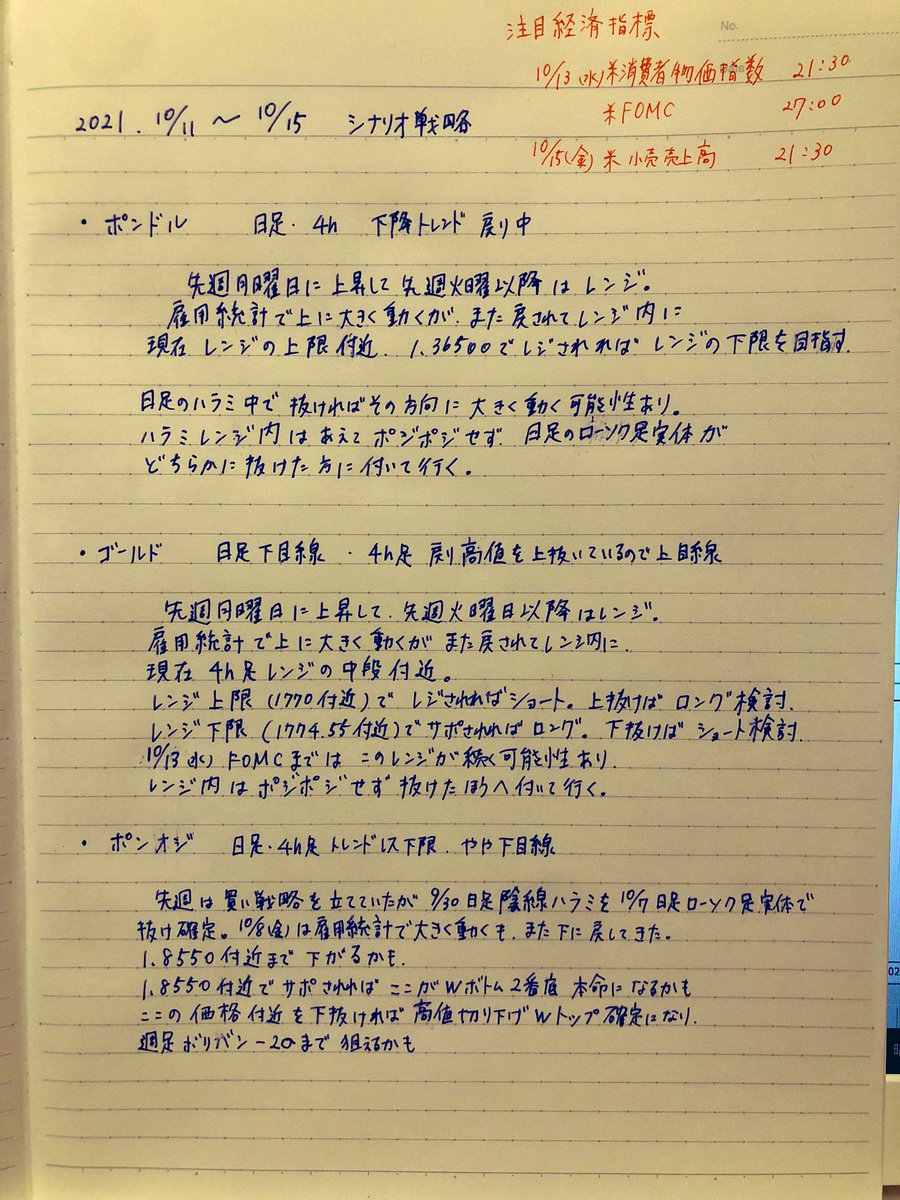 No.
注目経済指標
10/13(水)米消費者物価指数 21:30
米FOMC 27:00
10/15(金)米小売売上高 21:30
2021. 10/11 〜 10/15 シナリオ戦略
・ポンドル 日足・4h 下降トレンド 戻り中
先週月曜日に上昇して先週火曜以降はレンジ。
雇用統計で上に大きく動くが、また戻されてレンジ内に
現在レンジの上限付近. 1.36500でレジされればレンジの下限を目指す.
日足のハラミ中で抜ければその方向に大きく動く可能性あり。
ハラミレンジ内はあえてポジポジせず 日足のローソク足実体が
どちらかに抜けた方に付いて行く。
・ゴールド 日足下目線・4h足 戻り高値を上抜いているので上目線
先週月曜日に上昇して、先週火曜日以降はレンジ。
雇用統計で上に大きく動くがまた戻されてレンジ内に.
現在4h足レンジの中段付近。
レンジ上限(1770付近)でレジされればショート。上抜けばロング検討.
レンジ下限(1774.55付近)でサポされればロング。下抜けばショート検討.
10/13(水)FOMCまではこのレンジが続く可能性あり.
レンジ内はポジポジせず抜けたほうへ付いて行く。
・ポンオジ 日足・4h足トレンドレス下限. やや下目線
先週は買い戦略を立てていたが9/30日足陰線ハラミを10/7日足ローソク足実体で
抜け確定。10/8(金)は雇用統計で大きく動くも、また下に戻してきた。
1.8550付近まで下がるかも.
1.8550付近でサポされればここがWボトム2番底 本命になるかも
ここの価格付近を下抜ければ高値切り下げWトップ確定になり.
週足ボリバン-2σまで狙えるかも